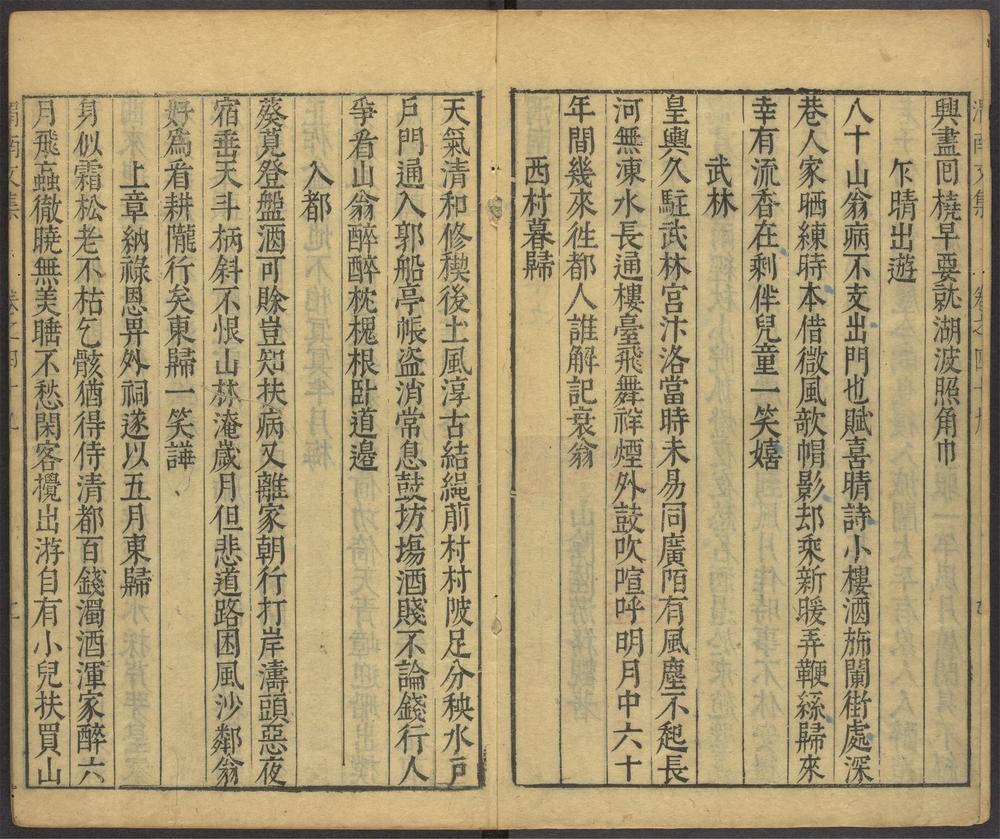 興盡囘橈早要就湖波照角巾
乍晴出遊
八十山翁病不支出門也賦喜晴詩小樓酒旆闌街處深
巷人家晒練時本借微風欹帽影却乘新暖弄鞭絲歸來
幸有流香在剩伴兒童一笑嬉
武林
皇輿久駐武林宮汴洛當時未易同廣陌有風塵不起長
河無凍水長通樓臺飛舞祥煙外鼓吹喧呼明月中六十
年間幾來徃都人誰解記衰翁
西村暮歸
天氣清和修禊後土風淳古結繩前村村陂足分秧水戸
戸門通入郭船亭帳盗消常息鼓坊塲酒賤不論錢行人
爭看山翁醉醉枕槐根卧道邉
入都
葵莧登盤酒可賖豈知扶病又離家朝行打岸濤頭惡夜
宿垂天斗柄斜不恨山林淹歲月但悲道路困風沙鄰翁
好為看耕隴行矣東歸一笑譁
上章納祿恩畀外祠遂以五月東歸
身似霜松老不枯乞骸猶得侍清都百錢濁酒渾家醉六
月飛蝱徹曉無美睡不愁閑客攪出游自有小兒扶買山